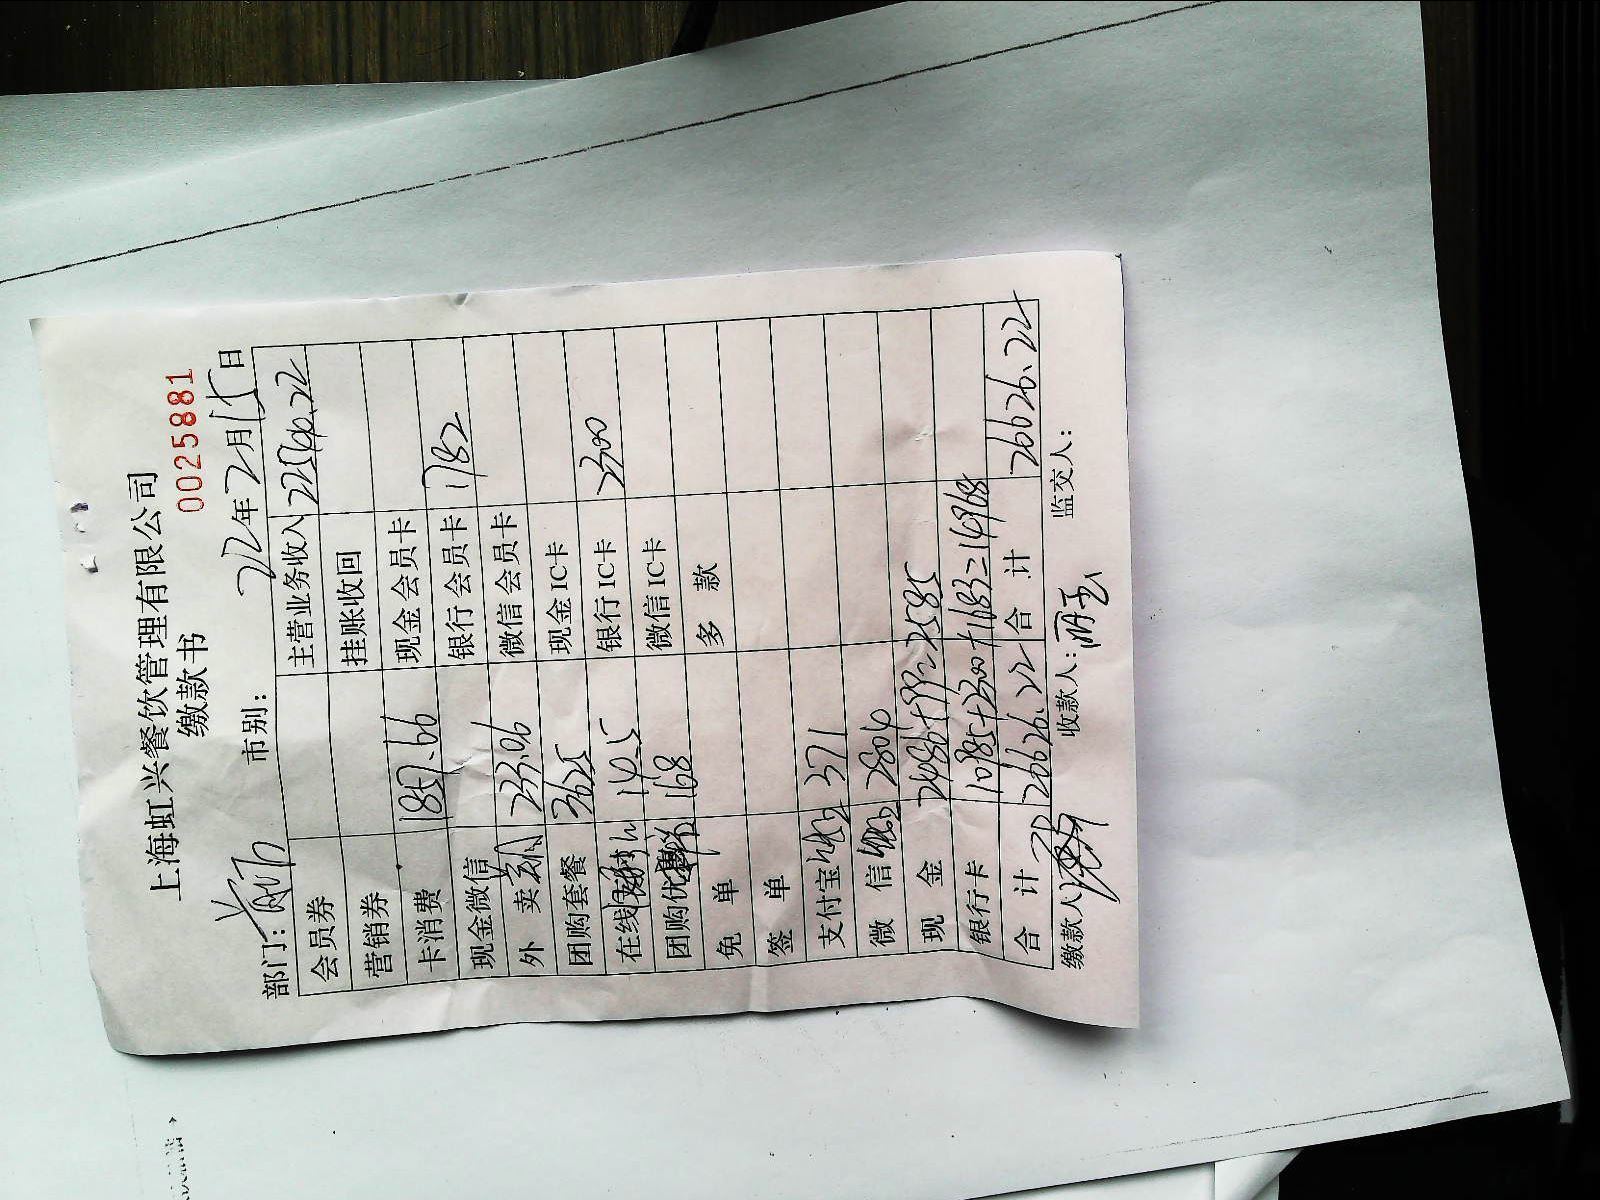 上海虹兴餐饮管理有限公司
缴款书 0025881
部门：前厅 市别： 22年2月15日
会员券 主营业务收入 22544.22
营销券 挂账收回
卡消费 1857.66 现金会员卡
现金微信 银行会员卡 1782
外卖 233.06 微信会员卡
团购套餐 3625 现金IC卡
在线 14.5 银行IC卡 2300
团购优 168 微信IC卡
免单 多款
签单
支付宝 371
微信 2804
现金 2486+99=2585
银行卡 10886+2300+1782=14968
合计 26626.22 合计 26626.22
缴款人： 收款人： 监交人：